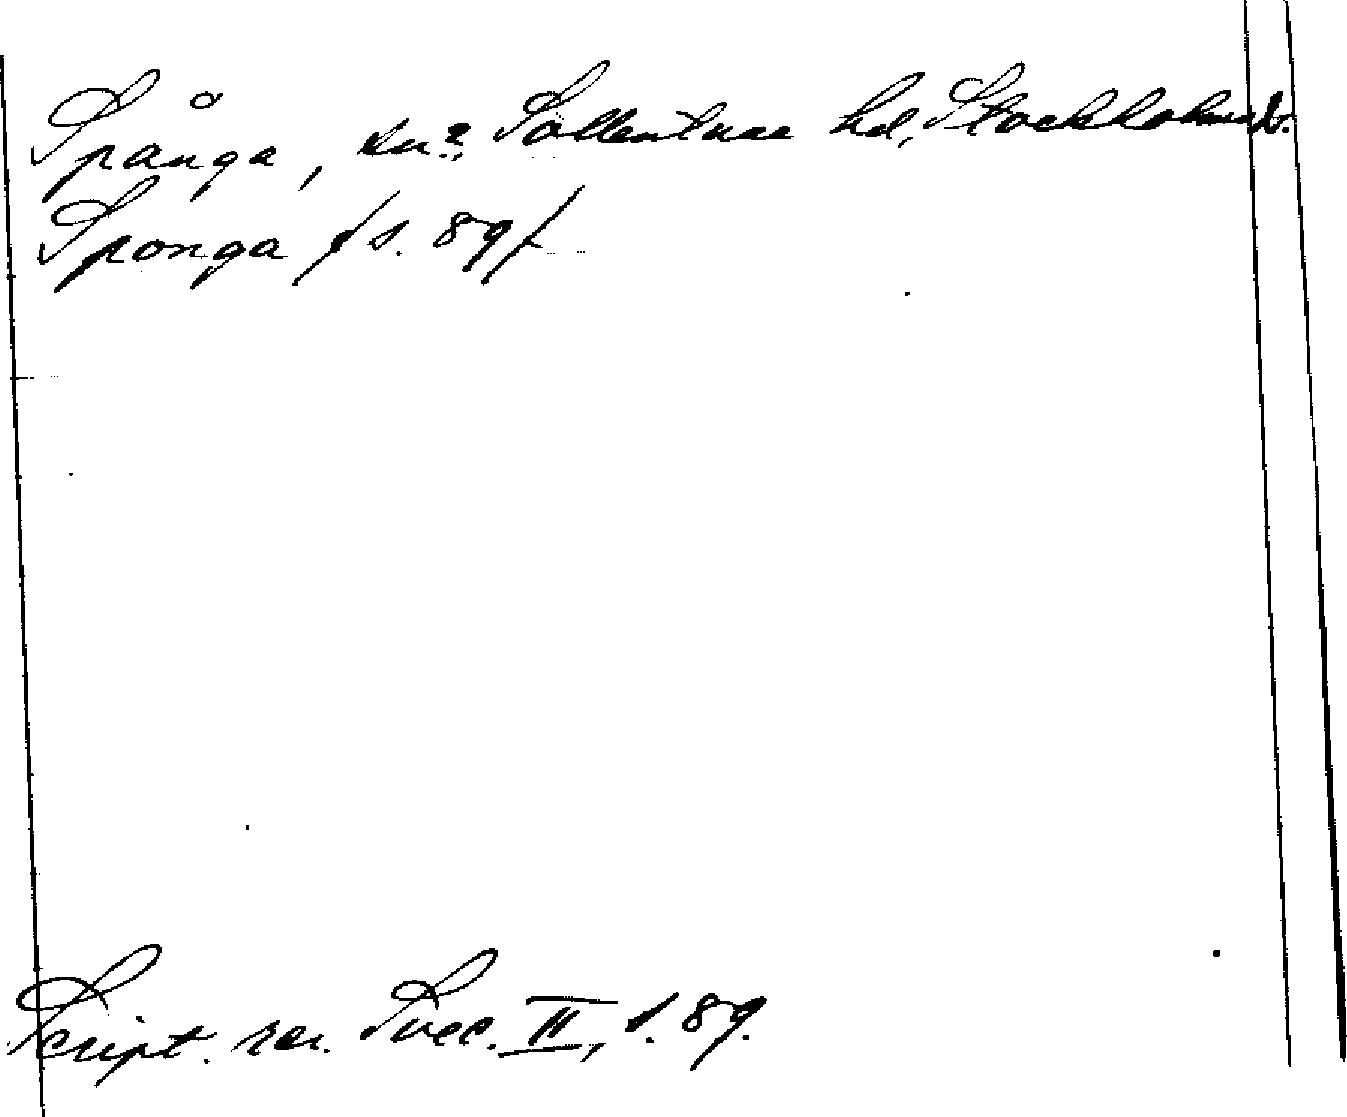 Spånga, sn?, Sollentuna hd, Stockholms l.
Sponga /s. 89/
Script. rer. Svec. II, s. 89.